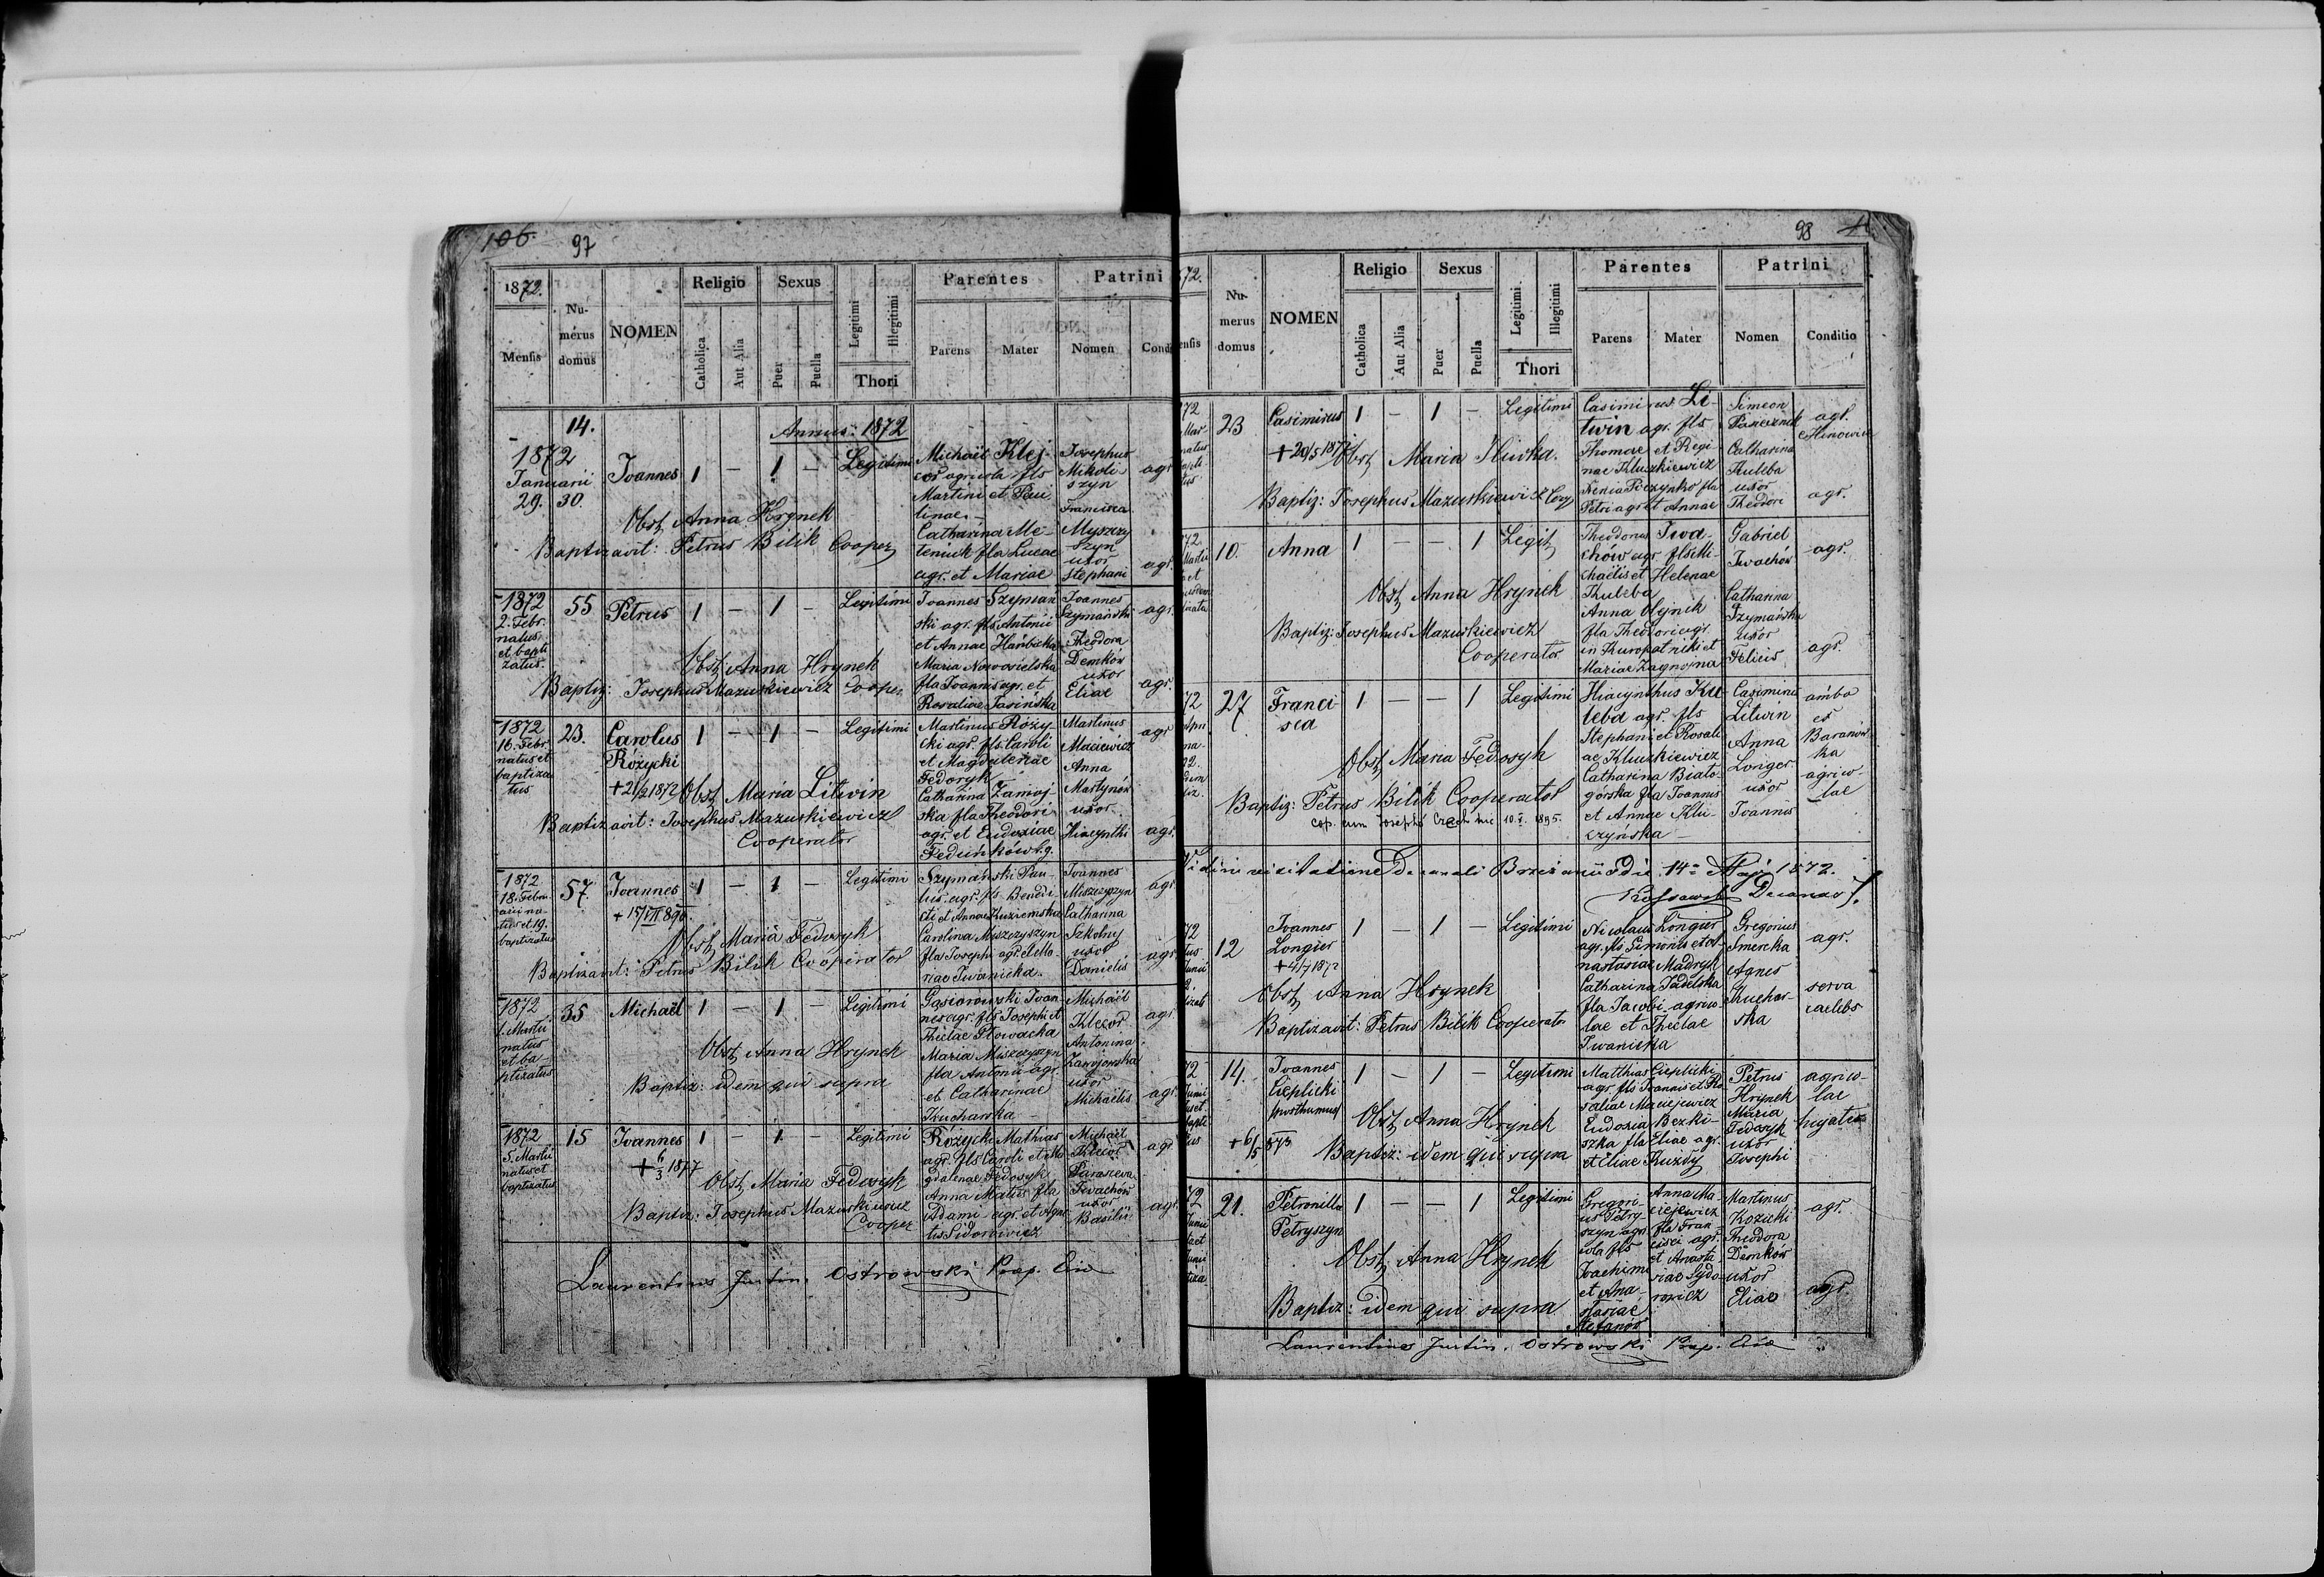 106. 97
1872.
Mensis
Numerus domus
NOMEN
Religio
Catholica
Aut Alia
Sexus
Puer
Puella
Legitimi
Illegitimi
Thori
Parentes
Parens
Mater
Patrini
Nomen
Cond
Annus: 1872
1872
Januarii
29. 30.
14.
Joannes
1 — 1 —
Legitimi
Michaël Klej-
cor agricola fls
Martini et Pau
linae.
Catharina Me-
teniuk fla Lucae
agr. et Mariae
Josephus
Mikoli-
szyn
Francisca
Myszczy
szyn
uxor
Stephani
agr.
agr.
Obst. Anna Hrynek
Baptizavit: Petrus Bilik Cooper
1872
2. Febr.
natus
et bapti
zatus
55
Petrus
1 — 1 —
Legitimi
Joannes Szyman
ski agr. fls Antonii
et Annae
Maria Nowosielska
fla Joannis agr. et
Rosaliae Jasińska
Joannes
Szymański
Theodora
Demków
uxor
Eliae
agr.
agr.
Obst. Anna Hrynek
Baptiz: Josephus Mazurkiewicz Cooper.
1872
16. Febr.
natus et
baptiza
tus
23.
Carolus
Rożycki
+21/2 1872
1 — 1 —
Legitimi
Martinus Rozy-
cki agr. fls Caroli
et Magdalenae
Fedoryk
Catharina Zamoj-
ska fla Theodori
agr. et Eudoxiae
Feduńków
Martinus
Maciewicz
Anna
Martynów
uxor
Hiacynthi
agr
agr.
Obst. Maria Litwin
Baptizavit: Josephus Mazurkiewicz
Cooperator
1872
18. Febru
arii na-
tus et 19.
baptizatus
57.
Joannes
1 — 1 —
Legitimi
Szymański Pau-
lus agr. fls Benedi
cti et Annae Kuziemska
Carolina Myszczyszyn
fla Josephi agr. et Ma-
riae Iwanicka.
Joannes
Miszczyszyn
Catharina
Szkolny
uxor
Danielis
agr.
agr.
Obst. Maria Fedosyk
Baptizavit: Petrus Bilik Cooperator
1872
1. Martii
natus
et ba-
ptizatus
35
Michaël
1 — 1 —
Legitimi
Gąsiorowski Joan-
nes agr. fls Josephi et
Theclae Słowacka
Maria Miszczyszyn
fla Antonii agr.
et Catharinae
Kucharska
Michaël
Klecor
Antonina
Zawojowska
uxor
Michaelis
agr.
agr.
Obst. Anna Hrynek
Baptiz: idem qui supra
1872
5. Martii
natus et
baptizatus
15
Joannes
+ 6/3 1877
1 — 1 —
Legitimi
Rożycki Mathias
agr. fls Caroli et Ma
gdalenae Fedosyk
Anna Matus fla
Adami agr. et Agne-
tis Sidorowicz
Michaël
Klecor
Parasceva
Iwachów
uxor
Basilii
agr
agr.
Obst. Maria Fedosyk
Baptiz: Josephus Mazurkiewicz
Cooper
Laurentius Justin. Ostrowski
98
72.
ensis
Numerus domus
NOMEN
Religio
Catholica
Aut Alia
Sexus
Puer
Puella
Legitimi
Illegitimi
Thori
Parentes
Parens
Mater
Patrini
Nomen
Conditio
23
Casimirus
1 — 1 —
Legitimi
Casimirus Li-
twin agr. fls
Thomae et Regi
nae Kluzkiewicz
Xenia Pieczynko fla
Petri agr. et Annae
Simeon
Catharina
Kuleba
uxor
Theodori
agr.
agr.
Obst. Maria Huvka.
Baptiz: Josephus Mazurkiewicz Coop
10.
Anna
1 — — 1
Legit.
Theodorus Iwa-
chów agr. fls Mi-
chaëlis et Helenae
Kuleba
Anna Olynik
fla Theodori agr.
in Kuropatniki et
Mariae Zagnojna
Gabriel
Iwachów
Catharina
Szymańska
uxor
Felicis
agr.
agr.
Obst. Anna Hrynek
Baptiz: Josephus Mazurkiewicz
Cooperator
27
Franci
sca
1 — — 1
Legitimi
Hiacynthus Ku-
leba agr. fls
Stephani et Rosali
ae Kluzkiewicz
Catharina Biało-
górska fla Joannis
et Annae Klu-
czyńska
Casimirus
Litwin
Anna
Longer
uxor
Joannis
ambo
ex
Baranów-
ka
agrico-
lae
Obst. Maria Fedosyk
Baptiz: Petrus Bilik Cooperator
cop. cum Josepho 10.V. 1895.
Vidi in visitatione Decanali Brzezanii die 14a Maji 1872.
12
Joannes
Longier
+4/7 1872
1 — 1 —
Legitimi
Nicolaus Longier
agr. fls Simonis et A-
nastasiae Madryk
Catharina
fla Jacobi agrico-
lae et Theclae
Iwanicka
Gregorius
Smereka
Agnes
Kuchar-
ska
agr.
serva
caelebs
Obst. Anna Hrynek
Baptizavit: Petrus Bilik Cooperator
14.
Joannes
Cieplicki
posthumus
1 — 1 —
Legitimi
Matthias Cieplicki
agr. fls Joannis et Ro
saliae Maciejewicz
Eudoxia Bezki-
szka fla Eliae agr.
et Eliae Kuzdy
Petrus
Hrynek
Maria
Fedosyk
uxor
Josephi
agrico-
lae
+ 6/5 873
Obst. Anna Hrynek
Baptiz: idem qui supra
21.
Petronilla
Petryszyn
1 — — 1
Legitimi
Gregori-
us Petry-
szyn agri
cola fls
Joachimi
et Ana-
stasiae
Stefanów
Anna Ma-
ciejewicz
fla Fran
cisci agr.
et Anasta
siae Sydo-
rowicz
Martinus
Kozicki
Theodora
Demków
uxor
Eliae
agr.
agr.
Obst. Anna Hrynek
Baptiz: idem qui supra
Laurentius Justin. Ostrowski